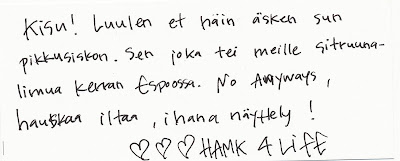 Kisu! Luulen et näin äsken sun
pikkusiskon. Sen joka tei meille sitruuna-
limua kerran Espoossa. No Anyways,
hauskaa iltaa, ihana näyttely!
♡♡♡ HAMK 4 LIFE